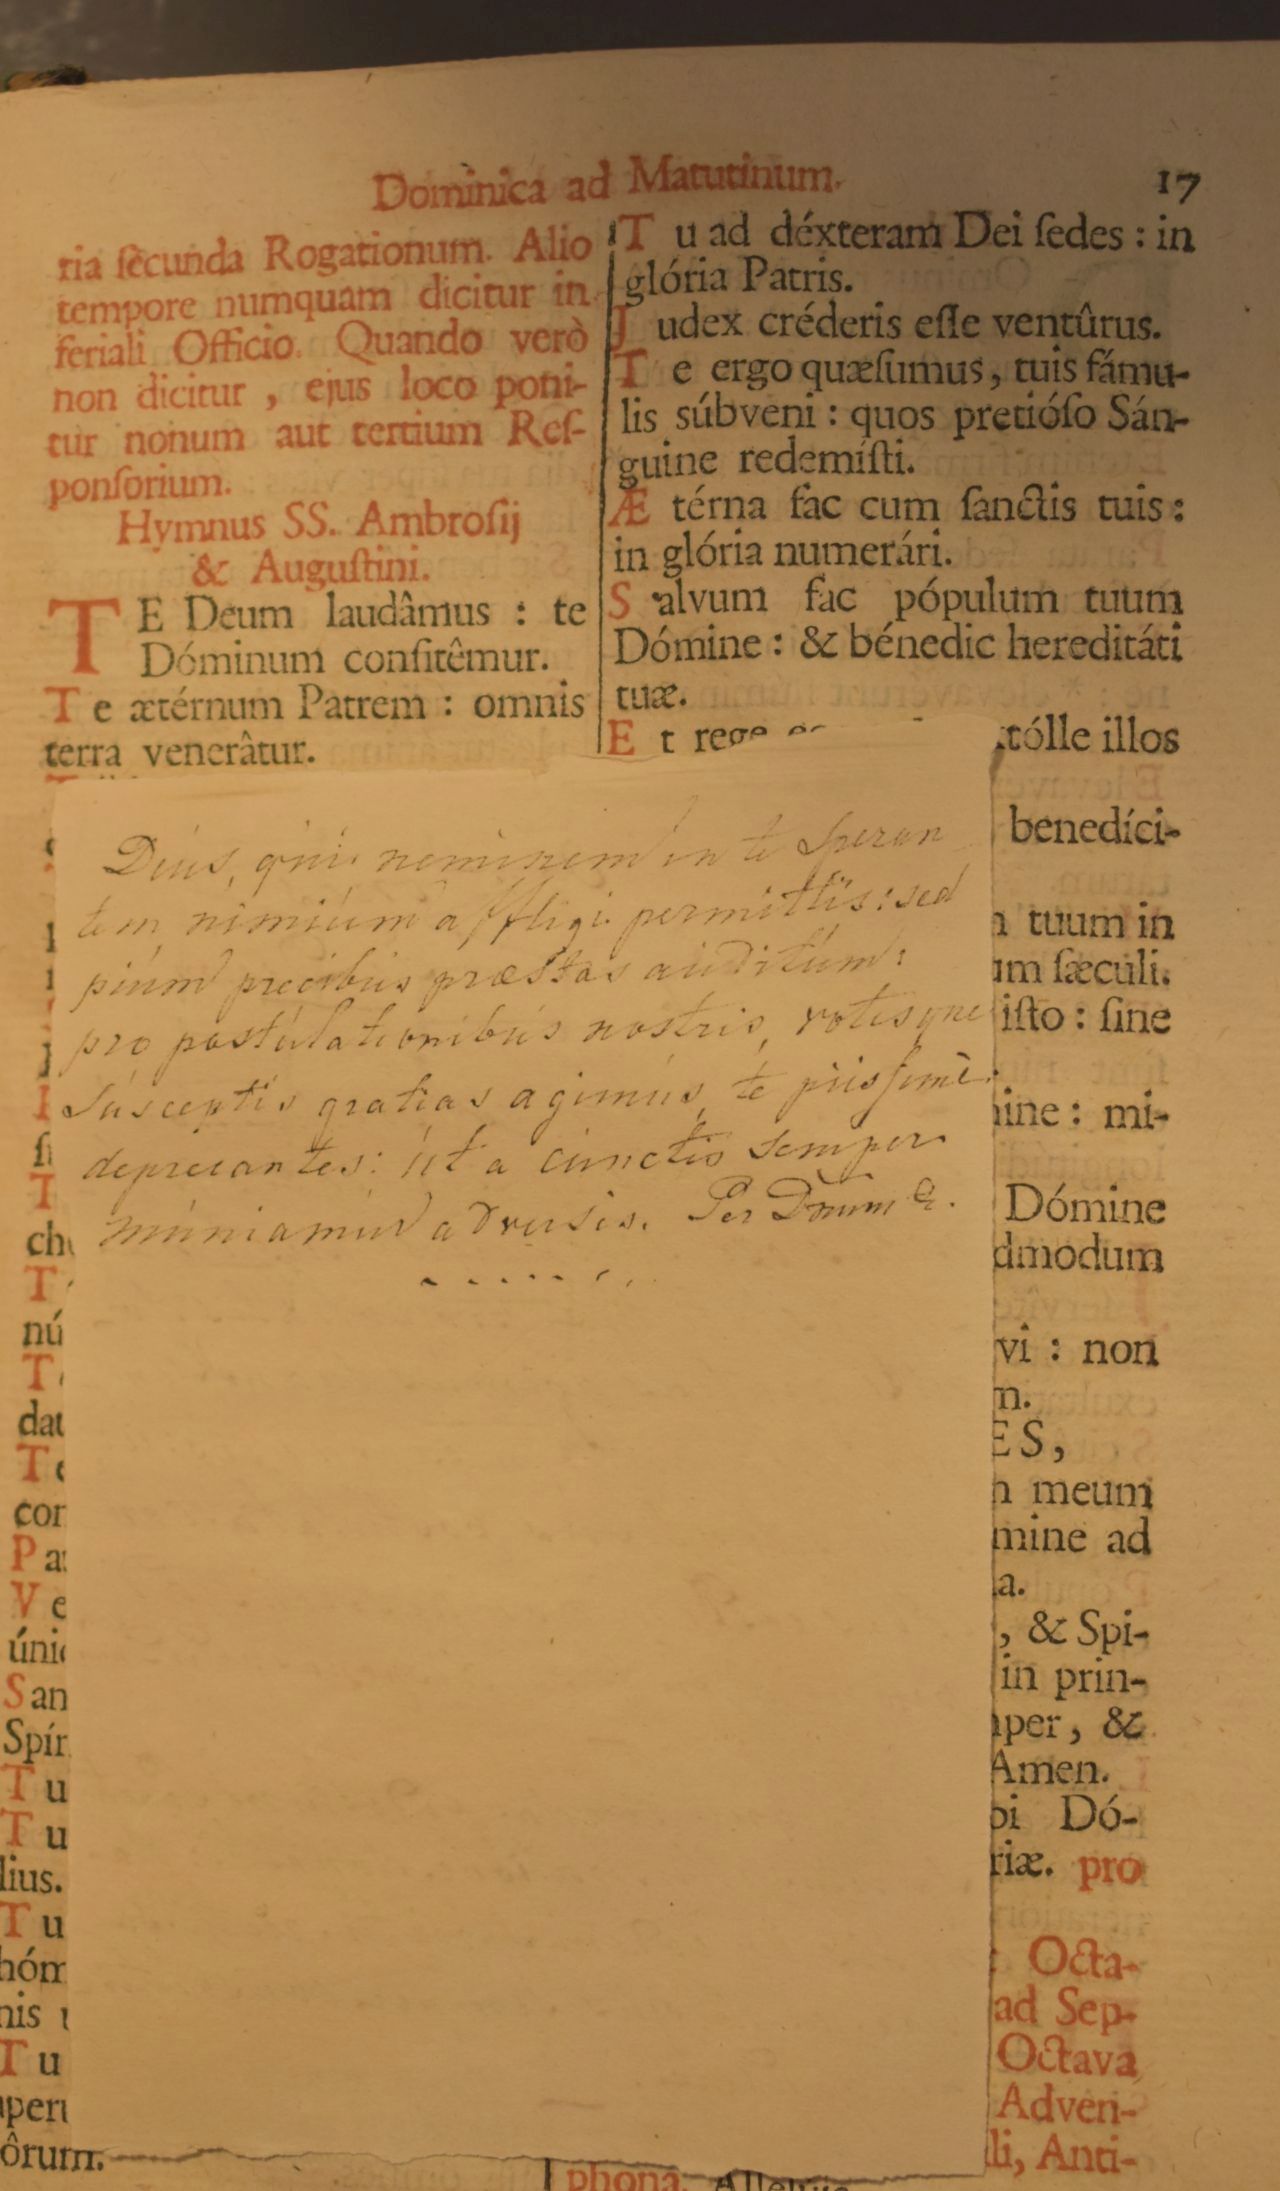 Dominica ad Matutinum.
17
ria secunda Rogationum. Alio
tempore numquam dicitur in
feriali Officio. Quando verò
non dicitur, ejus loco poni-
tur nonum aut tertium Res-
ponsorium.
Hymnus SS. Ambrosij
& Augustini.
TE Deum laudâmus : te
Dóminum confitêmur.
Te ætérnum Patrem : omnis
terra venerâtur.
ch
T
nú
T
dat
Te
con
Pa
Ve
úni
San
Spír
Tu
Tu
lius.
Tu
hóm
nis
Tu
ôrum.
Tu ad déxteram Dei sedes : in
glória Patris.
Judex créderis esse ventûrus.
Te ergo quæsumus, tuis fámu-
lis súbveni : quos pretióso Sán-
guine redemísti.
Ætérna fac cum sanctis tuis :
in glória numerári.
Salvum fac pópulum tuum
Dómine : & bénedic hereditáti
tuæ.
Et rege tólle illos
benedíci-
tuum in
um sæculi.
isto : sine
ine : mi-
Dómine
dmodum
vi : non
m.
ES,
meum
mine ad
a.
, & Spi-
in prin-
per, &
Amen.
bi Dó-
riæ. pro
Octa-
ad Sep-
Octava
Adven-
li, Anti-
phona. Alleluia
Deus, qui neminem in te speran
tem nimium affligi permittis: sed
pium precibus præstas auditum:
pro postulationibus nostris, votisque
susceptis gratias agimus, te piissimè
deprecantes: ut a cunctis semper
muniamur adversis. Per Dnum &.